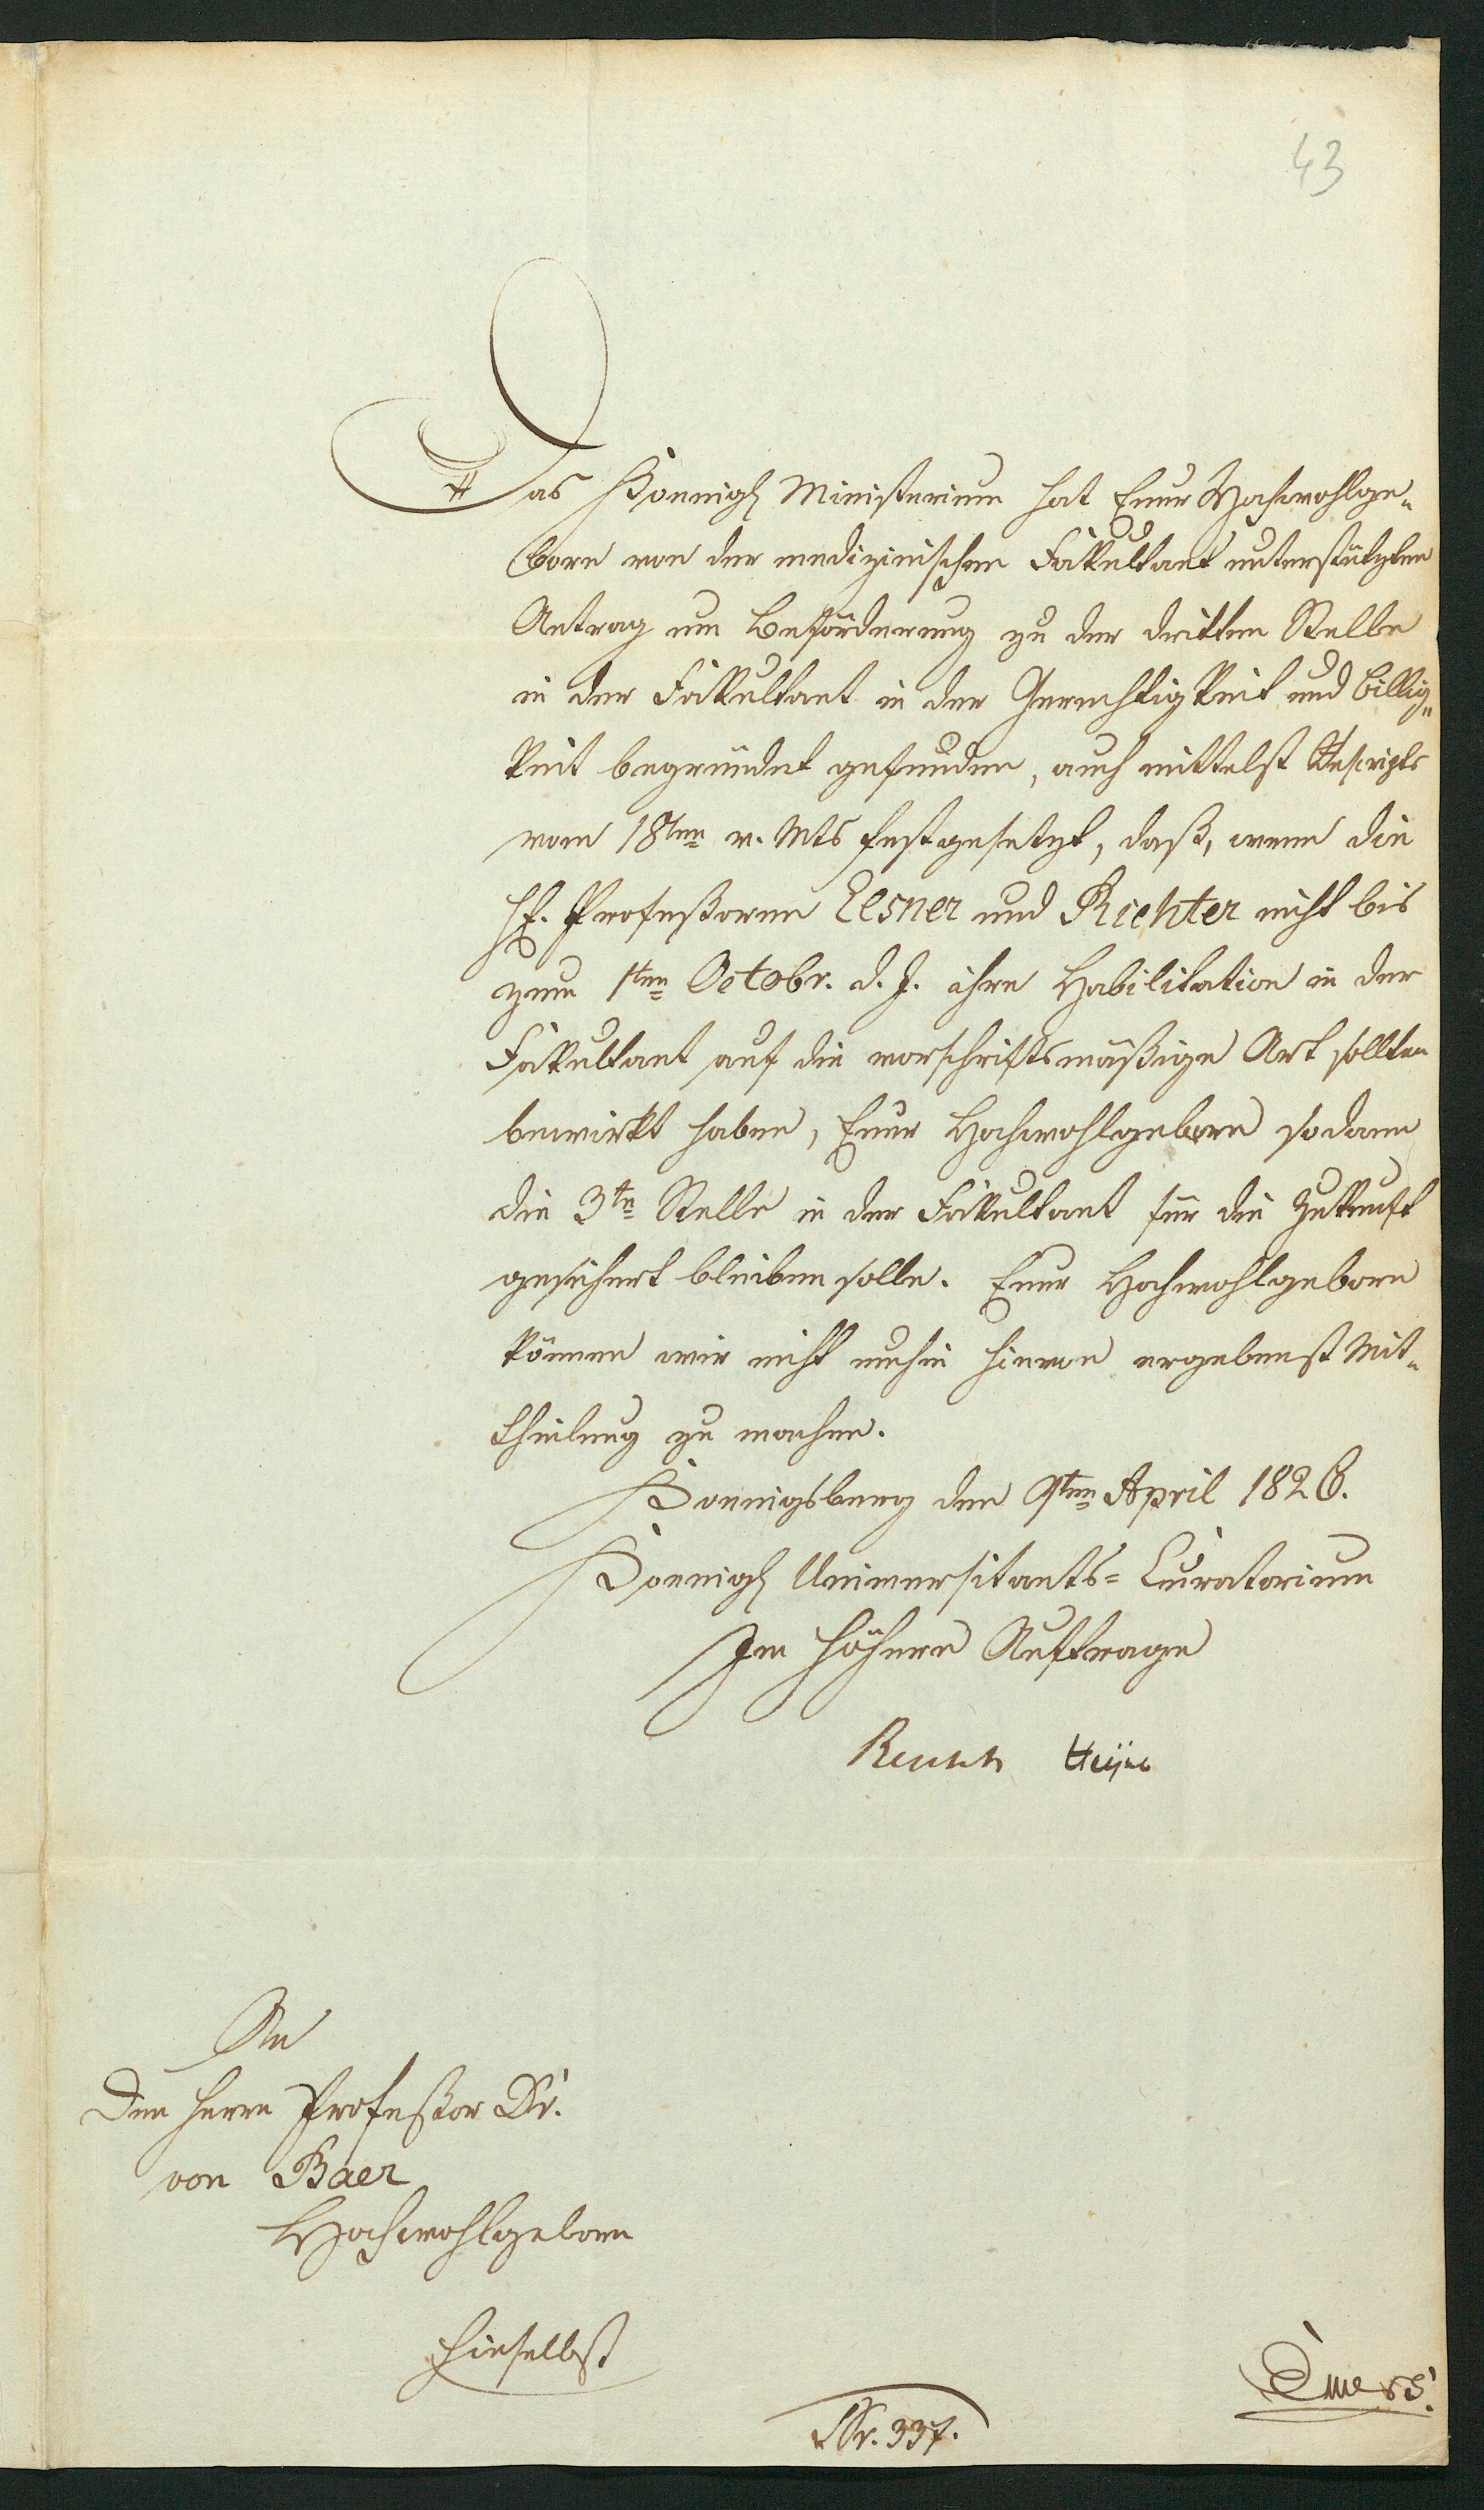 43
Das Koenigl Ministerium hat Euer Hochwohlge-
born von der medizinischen Fakultaet unterstützten
Antrag um Beförderung zu der dritten Stelle
in der Fakultaet in der Gerechtigkeit und Billig-
keit begründet gefunden, auch mittelst Rescripts
vom 18ten v. Mts festgesetzt, daß, wenn die
HH. Profeßoren Elsner und Richter nicht bis
zum 1ten Octobr. d. J. ihre Habilitation in der
Fakultaet auf die vorschriftsmäßige Art sollten
bewirkt haben, Euer Hochwohlgeborn sodann
die 3te Stelle in der Fakultaet für die Zukunft
gesichert bleiben solle. Euer Hochwohlgeborn
können wir nicht umhin hievon ergebenst Mit-
theilung zu machen.
Koenigsberg den 9ten April 1826.
Koenigl Universitaets-Curatorium
Im höhern Auftrage
Reusch
An
den Herrn Profeßor Dr.
von Baer
Hochwohlgeborn
hieselbst
Nr. 337.